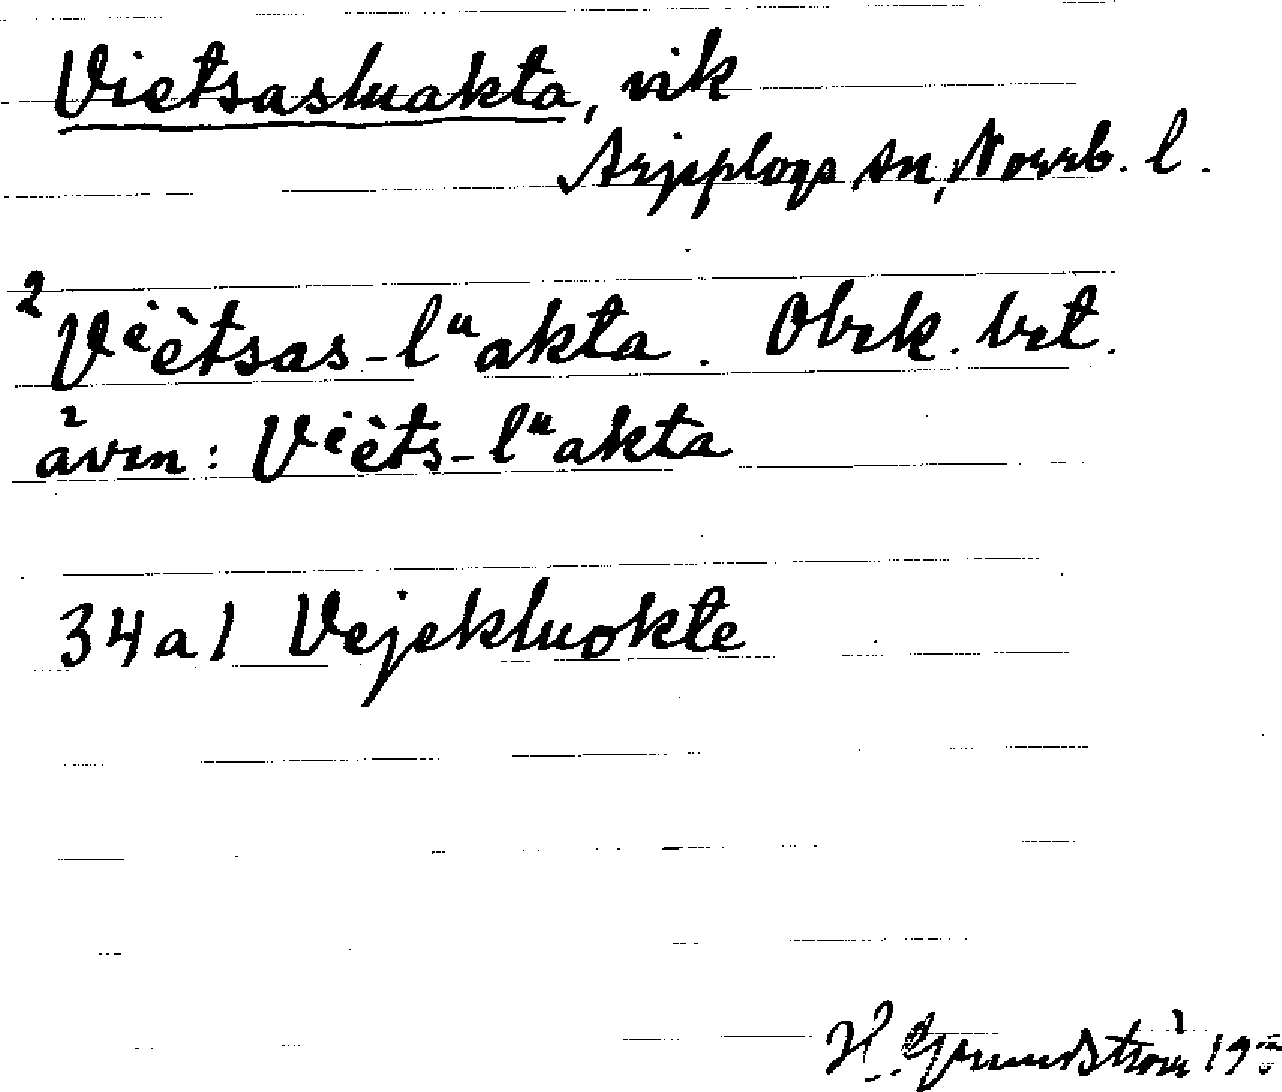 Vietsasluakta, vik
Arjeplogs sn, Norrb. l.
²Vⁱètsas-lᵘakta. Obek. bet.
även: Vⁱèts-lᵘakta
34a1 Vejekluokte
H. Grundström 19